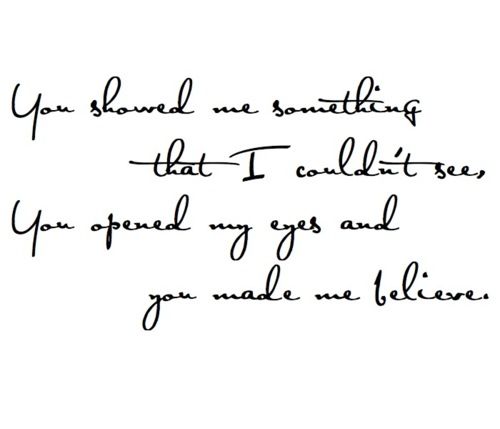 You showed me something
that I couldn't see,
You opened my eyes and
you made me believe.